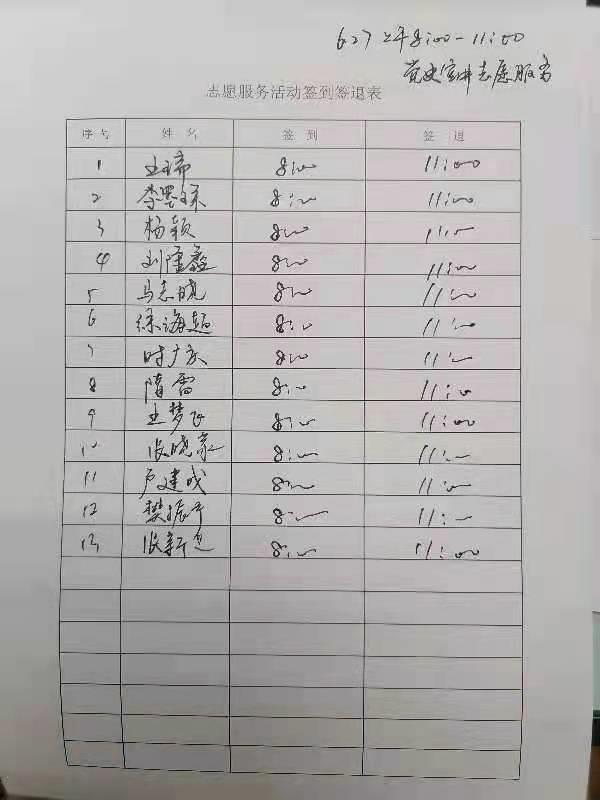 627 上午8:00-11:00
党史宣讲志愿服务
志愿服务活动签到签退表
序号 姓名 签到 签退
1 王瑞 8:00 11:00
2 8:00 11:00
3 杨颖 8:00 11:00
4 刘隆鑫 8:00 11:00
5 马志晓 8:00 11:00
6 徐海超 8:00 11:00
7 时广友 8:00 11:00
8 隋雷 8:00 11:00
9 王梦飞 8:00 11:00
10 张晓豪 8:00 11:00
11 卢建成 8:00 11:00
12 樊振宇 8:00 11:00
13 8:00 11:00